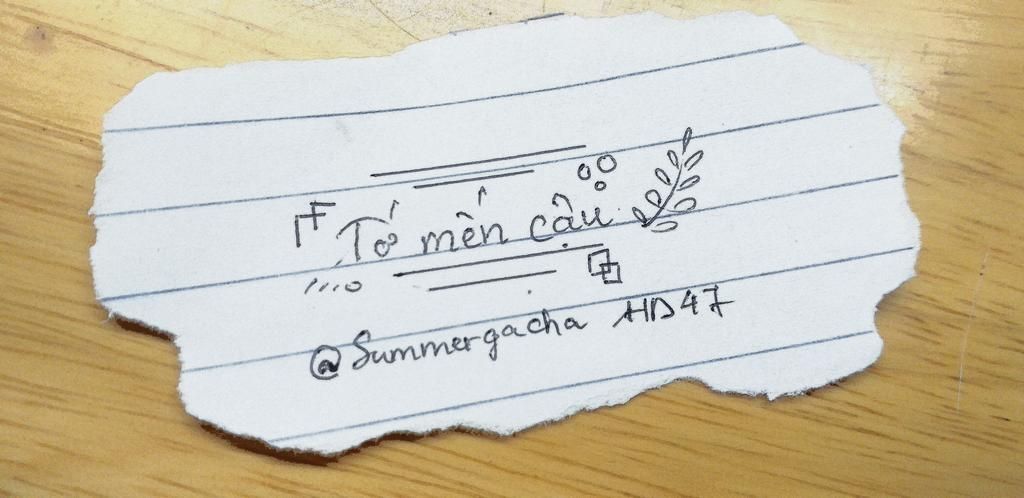 Tớ mến cậu
@Summergacha HD47